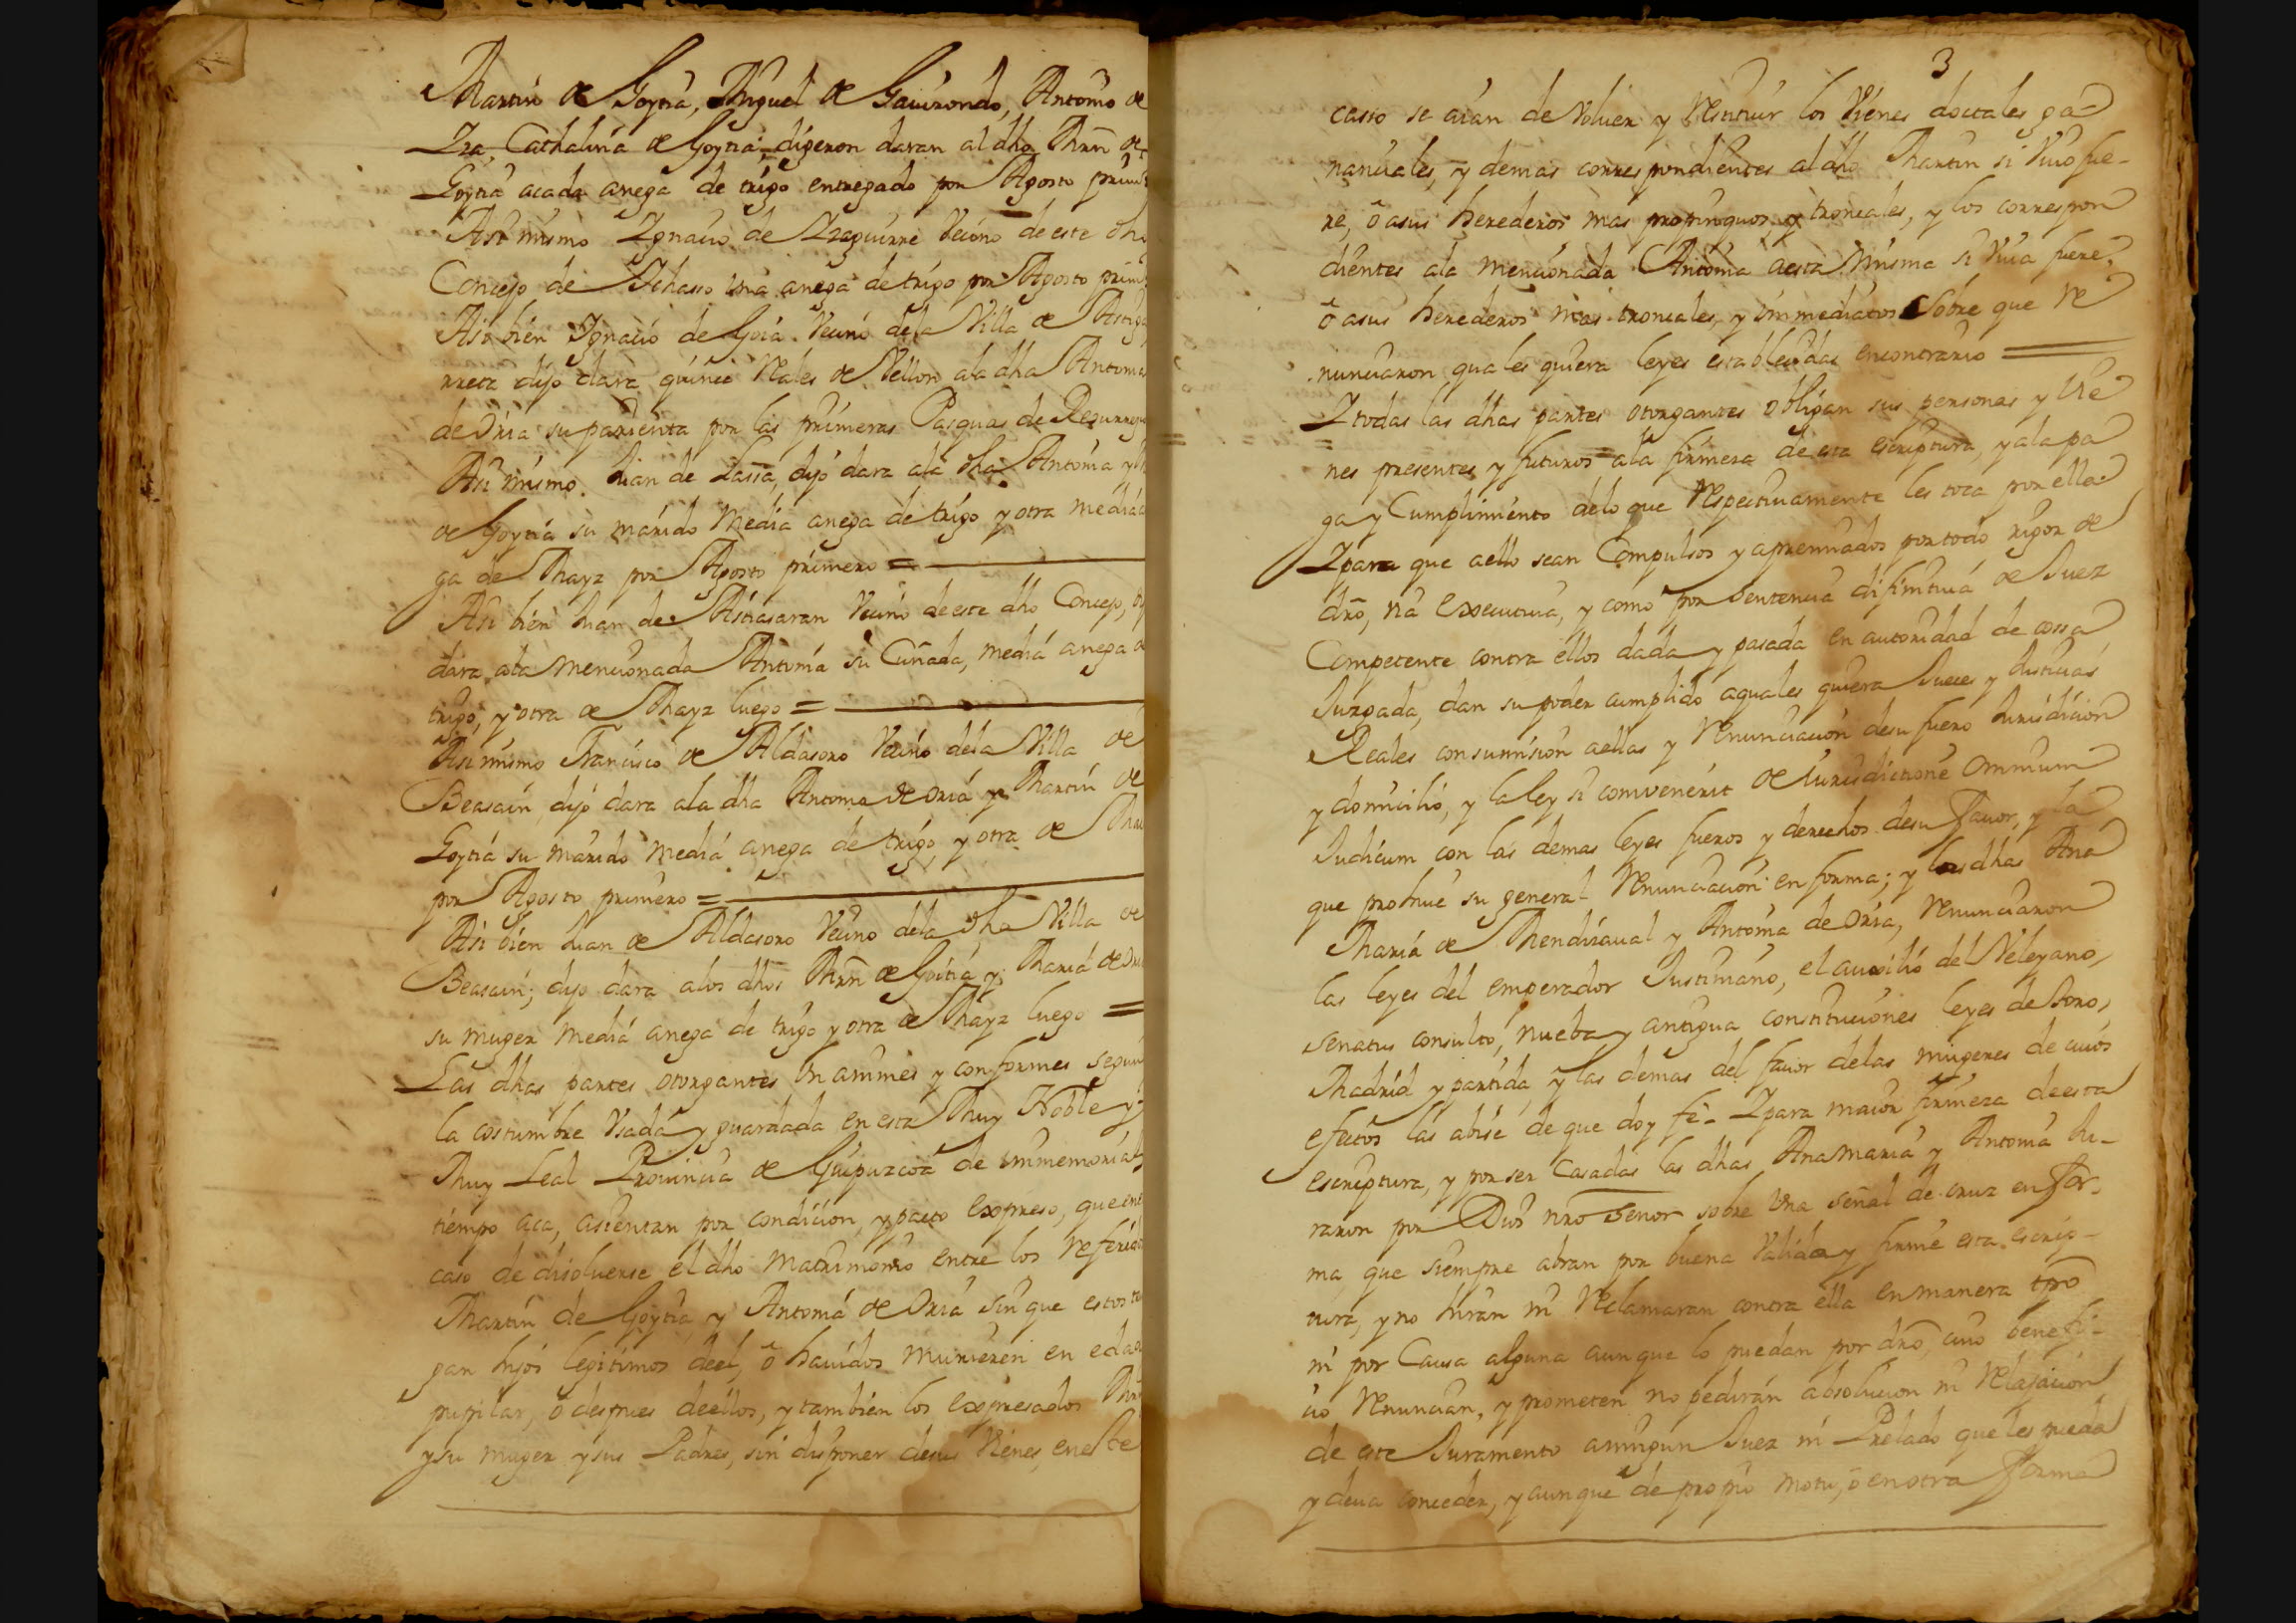 Martin de Goytia, Miguel de Gaiirondo, Antonio de
Iza, Cathalina de Goytia; digeron daran al dho Mrn de
Goytia acada anega de trigo entregado por Agosto prim
Asi mismo Ignacio de Izaguirre Vecino de este dho
Concejo de Ichasso una anega de trigo por Agosto prim
Asi bien Ignacio de Goia Vecino dela Villa de Astiga
rreta dijo dara quince Reales de Vellon ala dha Antonia
de Oria su parienta por las primeras Pasquas de Resurreg
Asi mismo Juan de Lassa, dijo dara ala dha Antonia y
de Goytia su marido Media anega de trigo y otra media
ga de Mayz por Agosto primero =
Asi bien Juan de Astiasaran Vecino de este dho Concejo,
dara ala mencionada Antonia su Cuñada, media anega de
trigo, y otra de Mayz luego =
Asi mismo Francisco de Aldasoro Vecino dela Villa de
Beasain, dijo dara ala dha Antonia de Oria y Martin de
Goytia su marido media anega de trigo y otra de Mai
por Agosto primero =
Asi bien Juan de Aldasoro Vecino dela dha Villa de
Beasain; dijo dara alos dhos Mrn de Goitia y Maria de Ori
su muger media anega de trigo y otra de Mayz luego =
Las dhas partes otorgantes Unanimes y conformes segun
la costumbre Usada y guardada en esta Muy Noble y
Muy Leal Provincia de Guipuzcoa de immemorial
tiempo aca, asientan por condicion, y pacto expreso, que en
caso de disoluerse el dho Matrimonio entre los referid
Martin de Goytia y Antonia de Oria sin que estos
gan hijos legitimos deel, ô hauidos murieren en edad
pupilar, ô despues deellos, y tambien los expresados Mrn
y su muger y sus Padres, sin disponer desus Vienes, eneste
3
casso se aian de Voluer y Restituir los Vienes doctales ga
nanciales, y demas correspondientes al dho Martin si Vivo fue-
re, ô asus herederos mas propinquos, y troncales, y los correspon
dientes ala mencionada Antonia aesta Misma si Viva fuere,
ô asus herederos mas troncales, y immediatos Sobre que re
nunciaron quales quiera leyes establecidas encontrario =
Y todas las dhas partes otorgantes obligan sus personas y Vie
nes presentes y futuros ala firmeza de esta escriptura, y ala pa
ga y Cumplimiento delo que Respectivamente les toca por ella
Y para que aello sean Compulsos y apremiados por todo rigor de
dro, via executiva, y como por Sentencia difinitiva de Juez
Competente contra ellos dada y pasada en autoridad de cossa
Juzgada, dan su poder cumplido aquales quiera Jueces y Justicias
Reales con sumision aellas y Renunciacion desu fuero Jurisdicion
y domicilio, y la ley si convenerit de Jurisdictione Omnium
Judicum con las demas leyes fueros y derechos desu fauor, y la
que prohiue su general Renunciacion en forma; y las dhas Ana
Maria de Mendizaual y Antonia de Oria, renunciaron
las leyes del emperador Justiniano, el auxilio del Veleyano,
senatus consulto, nueba y antigua constituciones leyes de Toro,
Madrid y partida, y las demas del fauor delas mugeres de cuios
efectos las abise de que doy fê. Y para maior firmeza de esta
escriptura, y por ser Casadas las dhas Ana maria y Antonia Ju-
raron por Dios nro Senor sobre Una señal de cruz en for-
ma, que siempre abran por buena Valida y firme esta escrip-
tura, y no hiran ni Reclamaran contra ella en manera tpo
ni por Causa alguna aunque lo puedan por dro, cuio benefi-
cio Renuncian, y prometen no pediran absolucion ni Relajacion
de este Juramento aningun Juez ni Prelado que les pueda
y deua conceder, y aunque de propio motu, ô en otra forma